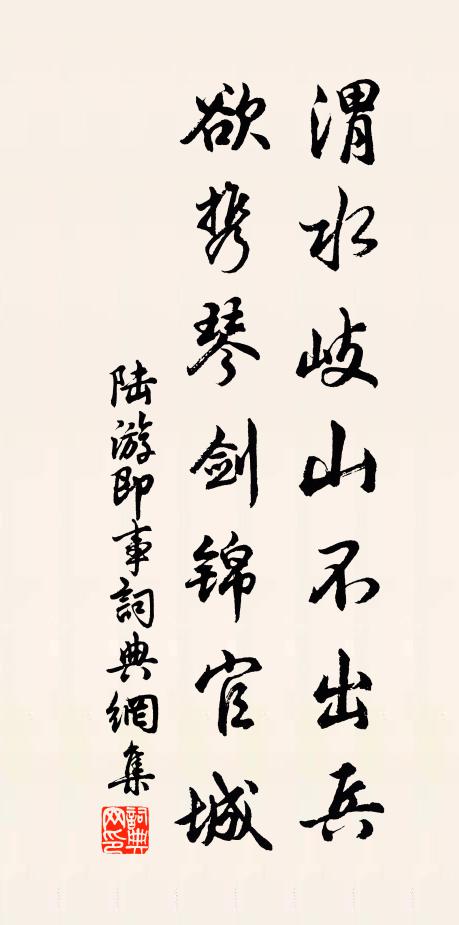 渭水岐山不出兵
欲携琴剑锦官城
陆游即事詞典網集
詞典网印